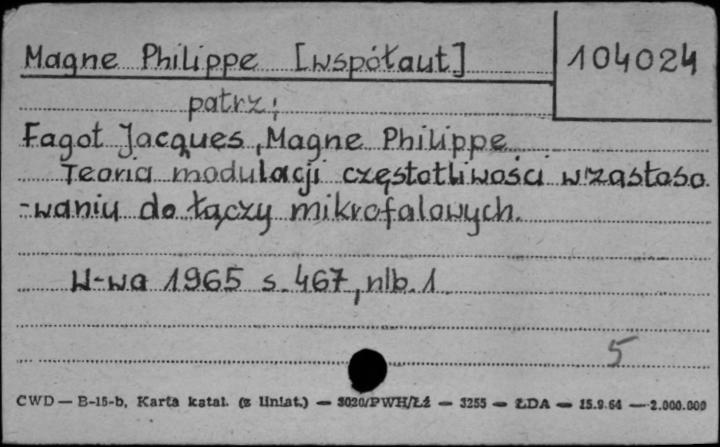 Magne Philippe [współaut]
104024
patrz;
Fagot Jacques, Magne Philippe
Teoria modulacji częstotliwości w zastoso
-waniu do łączy mikrofalowych.
W-wa 1965 s. 467, nlb. 1
5
CWD — B-15-b. Karta katal. (z liniat.) — 3020/PWH/Łź — 3255 — ŁDA — 15.9.64 — 2.000.000